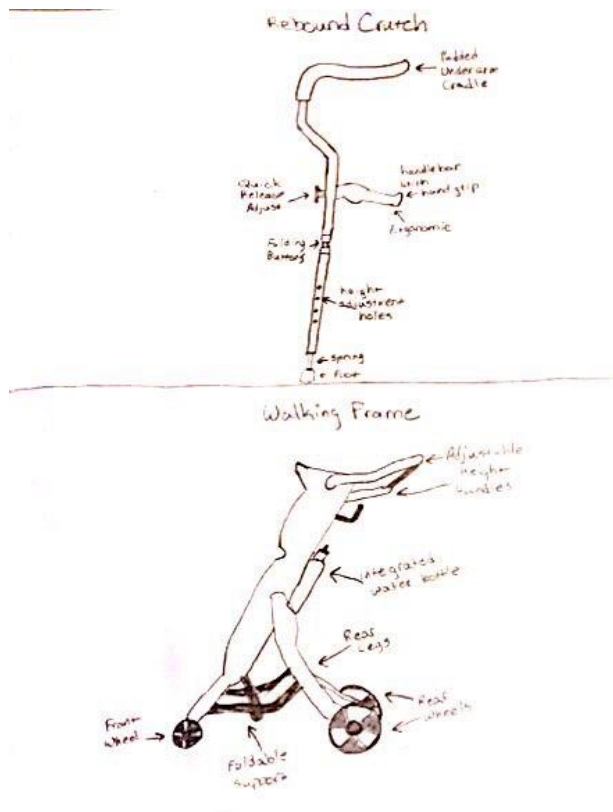 Rebound Crutch
Padded
Underarm
Cradle
Quick
Release
Adjust
handlebar
with
hand grip
Ergonomic
Folding
Button
height
adjustment
holes
spring
Foot
Walking Frame
Adjustable
height
handles
integrated
water bottle
Rear
Legs
Rear
Wheels
Front
Wheel
Foldable
support